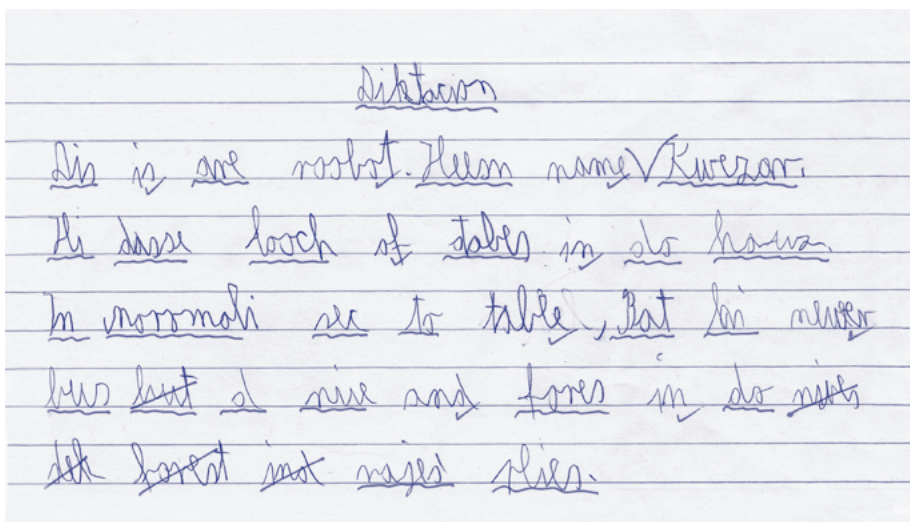 Diktacion
Dis is are roobot. Heesn name Kwezar.
Hi dasse looch of tabes in do hauz.
In noromali sec to table, Bat hi newer
bus but d nive and fores in do nives
deh forest ind rajed slies.